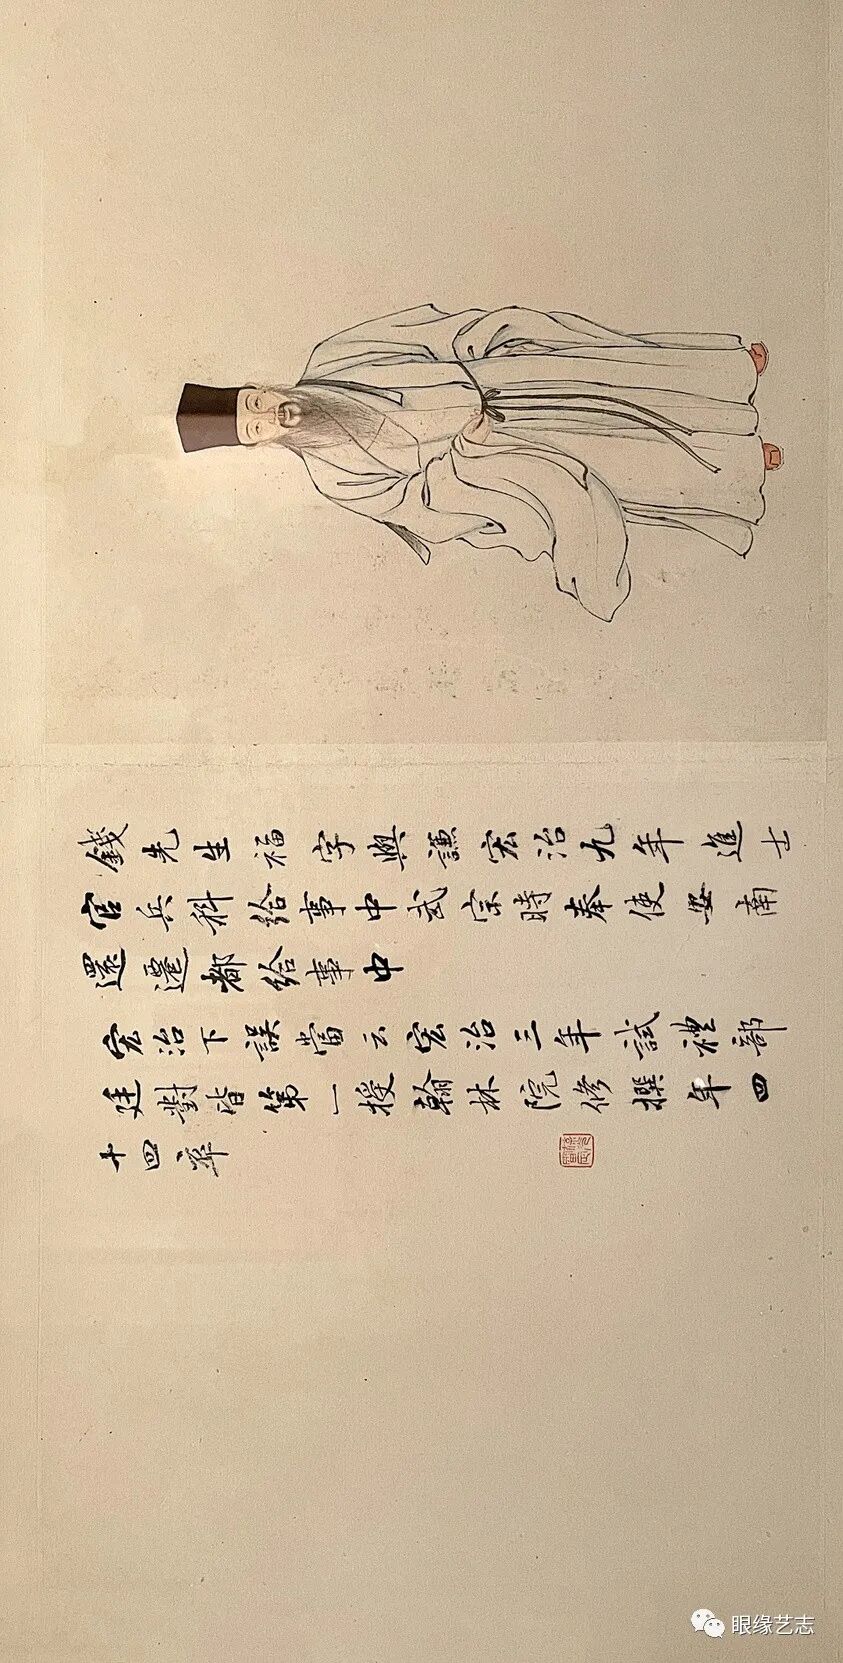 錢先生福字與謙宏治九年進士
官兵科給事中武宗時奉使安南
還遷都給事中
宏治下誤當云宏治三年試禮部
廷對皆第一授翰林院修撰年四
十四卒
眼缘艺志